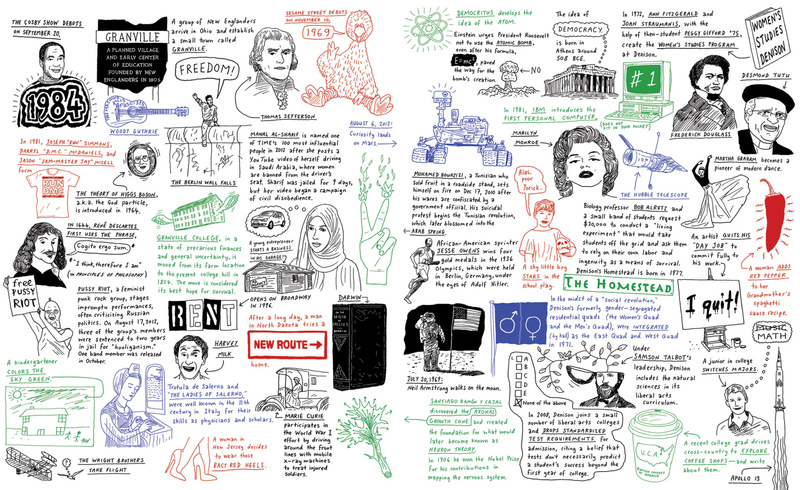 THE COSBY SHOW DEBUTS
ON SEPTEMBER 20,
1984
GRANVILLE
A PLANNED VILLAGE
AND EARLY CENTER
OF EDUCATION
FOUNDED BY NEW
ENGLANDERS IN 1805
A group of New Englanders
arrive in Ohio and establish
a small town called
GRANVILLE.
FREEDOM!
THOMAS JEFFERSON
SESAME STREET DEBUTS
ON NOVEMBER 10,
1969
WOODY GUTHRIE
In 1981, JOSEPH "RUN" SIMMONS,
DARRYL "D.M.C." McDANIELS, and
JASON "JAM-MASTER JAY" MIZELL
form
RUN
DMC
THE THEORY OF HIGGS BOSON,
a.k.a. the God particle,
is introduced in 1964.
THE BERLIN WALL FALLS
MANAL AL-SHARIF is named one
of TIME'S 100 most influential
people in 2012 after she posts a
YouTube video of herself driving
in Saudi Arabia, where women
are banned from the driver's
seat. Sharif was jailed for 9 days,
but her video began a campaign
of civil disobedience.
AUGUST 6, 2012:
Curiosity lands
on Mars.
IN 1644, RENÉ DESCARTES
FIRST USES THE PHRASE,
Cogito ergo sum,
"I think, therefore I am"
(IN PRINCIPLES OF PHILOSOPHY)
free
PUSSY
RIOT
PUSSY RIOT, a feminist
punk rock group, stages
impromptu performances,
often criticizing Russian
politics. On August 17, 2012,
three of the group's members
were sentenced to two years
in jail for "hooliganism."
One band member was released
in October.
GRANVILLE COLLEGE, in a
state of precarious finances
and general uncertainty, is
moved from its farm location
to the present college hill in
1854. The move is considered
its best hope for survival.
A young entrepreneur
STARTS A BUSINESS
IN HIS GARAGE
RENT
OPENS ON BROADWAY
IN 1996.
HARVEY
MILK
After a long, day, a man in
North Dakota tries a
NEW ROUTE
home.
DARWIN
A kindergartener
COLORS THE
SKY GREEN.
THE WRIGHT BROTHERS
TAKE FLIGHT
Trotula de Salerno and
THE "LADIES OF SALERNO,"
were well known in the 11th
century in Italy for their
skills as physicians and scholars.
A woman in
New Jersey decides
to wear those
RACY RED HEELS.
MARIE CURIE
participates in
the World War I
effort by driving
around the front
lines with mobile
x-ray machines
to treat injured
soldiers.
DEMOCRITUS develops the
idea of the ATOM.
Einstein urges President Roosevelt
not to use the ATOMIC BOMB,
even after his formula,
E=mc², paved
the way for the
bomb's creation.
NO
The idea of
DEMOCRACY
is born in
Athens around
508 BCE.
In 1972, ANN FITZGERALD and
JOAN STRAUMANIS, with the
help of then-student PEGGY GIFFORD '75,
create the WOMEN'S STUDIES PROGRAM
at Denison.
WOMEN'S
STUDIES
DENISON
#1
In 1981, IBM introduces the
FIRST PERSONAL COMPUTER.
(DOES NOT
FIT IN YOUR POCKET)
FREDERICK DOUGLASS
DESMOND TUTU
MARILYN
MONROE
MOHAMED BOUAZIZI, a Tunisian who
sold fruit in a roadside stand, sets
himself on fire on Dec 17, 2010 after
his wares are confiscated by a
government official. His suicidal
protest begins the Tunisian revolution,
which later blossomed into the
ARAB SPRING.
Alas,
poor
Yorick..
A shy little boy
STARS in the
school play.
African-American sprinter
JESSE OWENS wins four
gold medals in the 1936
Olympics, which were held
in Berlin, Germany, under
the eyes of Adolf Hitler.
THE HUBBLE TELESCOPE
MARTHA GRAHAM becomes a
pioneer of modern dance.
Biology professor BOB ALRUTZ and
a small band of students request
$20,000 to conduct a "living
experiment" that would take
students off the grid and ask them
to rely on their own labor and
ingenuity as a means of survival.
Denison's Homestead is born in 1977.
THE HOMESTEAD
An artist QUITS HIS
"DAY JOB" to
commit fully to
his work.
I quit!
A woman ADDS
RED PEPPER
to her
Grandmother's
spaghetti
sauce recipe.
JULY 20, 1969:
Neil Armstrong walks on the moon.
In the midst of a "social revolution,"
Denison's formerly gender-segregated
residential quads (the Women's Quad
and the Men's Quad), were INTEGRATED
(by hall) as the East Quad and West Quad
in 1971.
A
B
C
D
None of the above
Under
SAMSON TALBOT'S
leadership, Denison
includes the natural
sciences in its
liberal arts
curriculum.
MUSIC
MATH
A junior in college
SWITCHES MAJORS.
SANTIAGO RAMÓN Y CAJAL
discovered the AXONAL
GROWTH CONE and created
the foundation for what would
later become known as
NEURON THEORY.
In 1906 he won the Nobel Prize
for his contributions in
mapping the nervous system.
In 2008, Denison joins a small
number of liberal arts colleges
and DROPS STANDARDIZED
TEST REQUIREMENTS for
admission, citing a belief that
tests don't necessarily predict a
student's success beyond the
First year of college.
A recent college grad drives
cross-country to EXPLORE
COFFEE SHOPS—and write
about them.
APOLLO 13